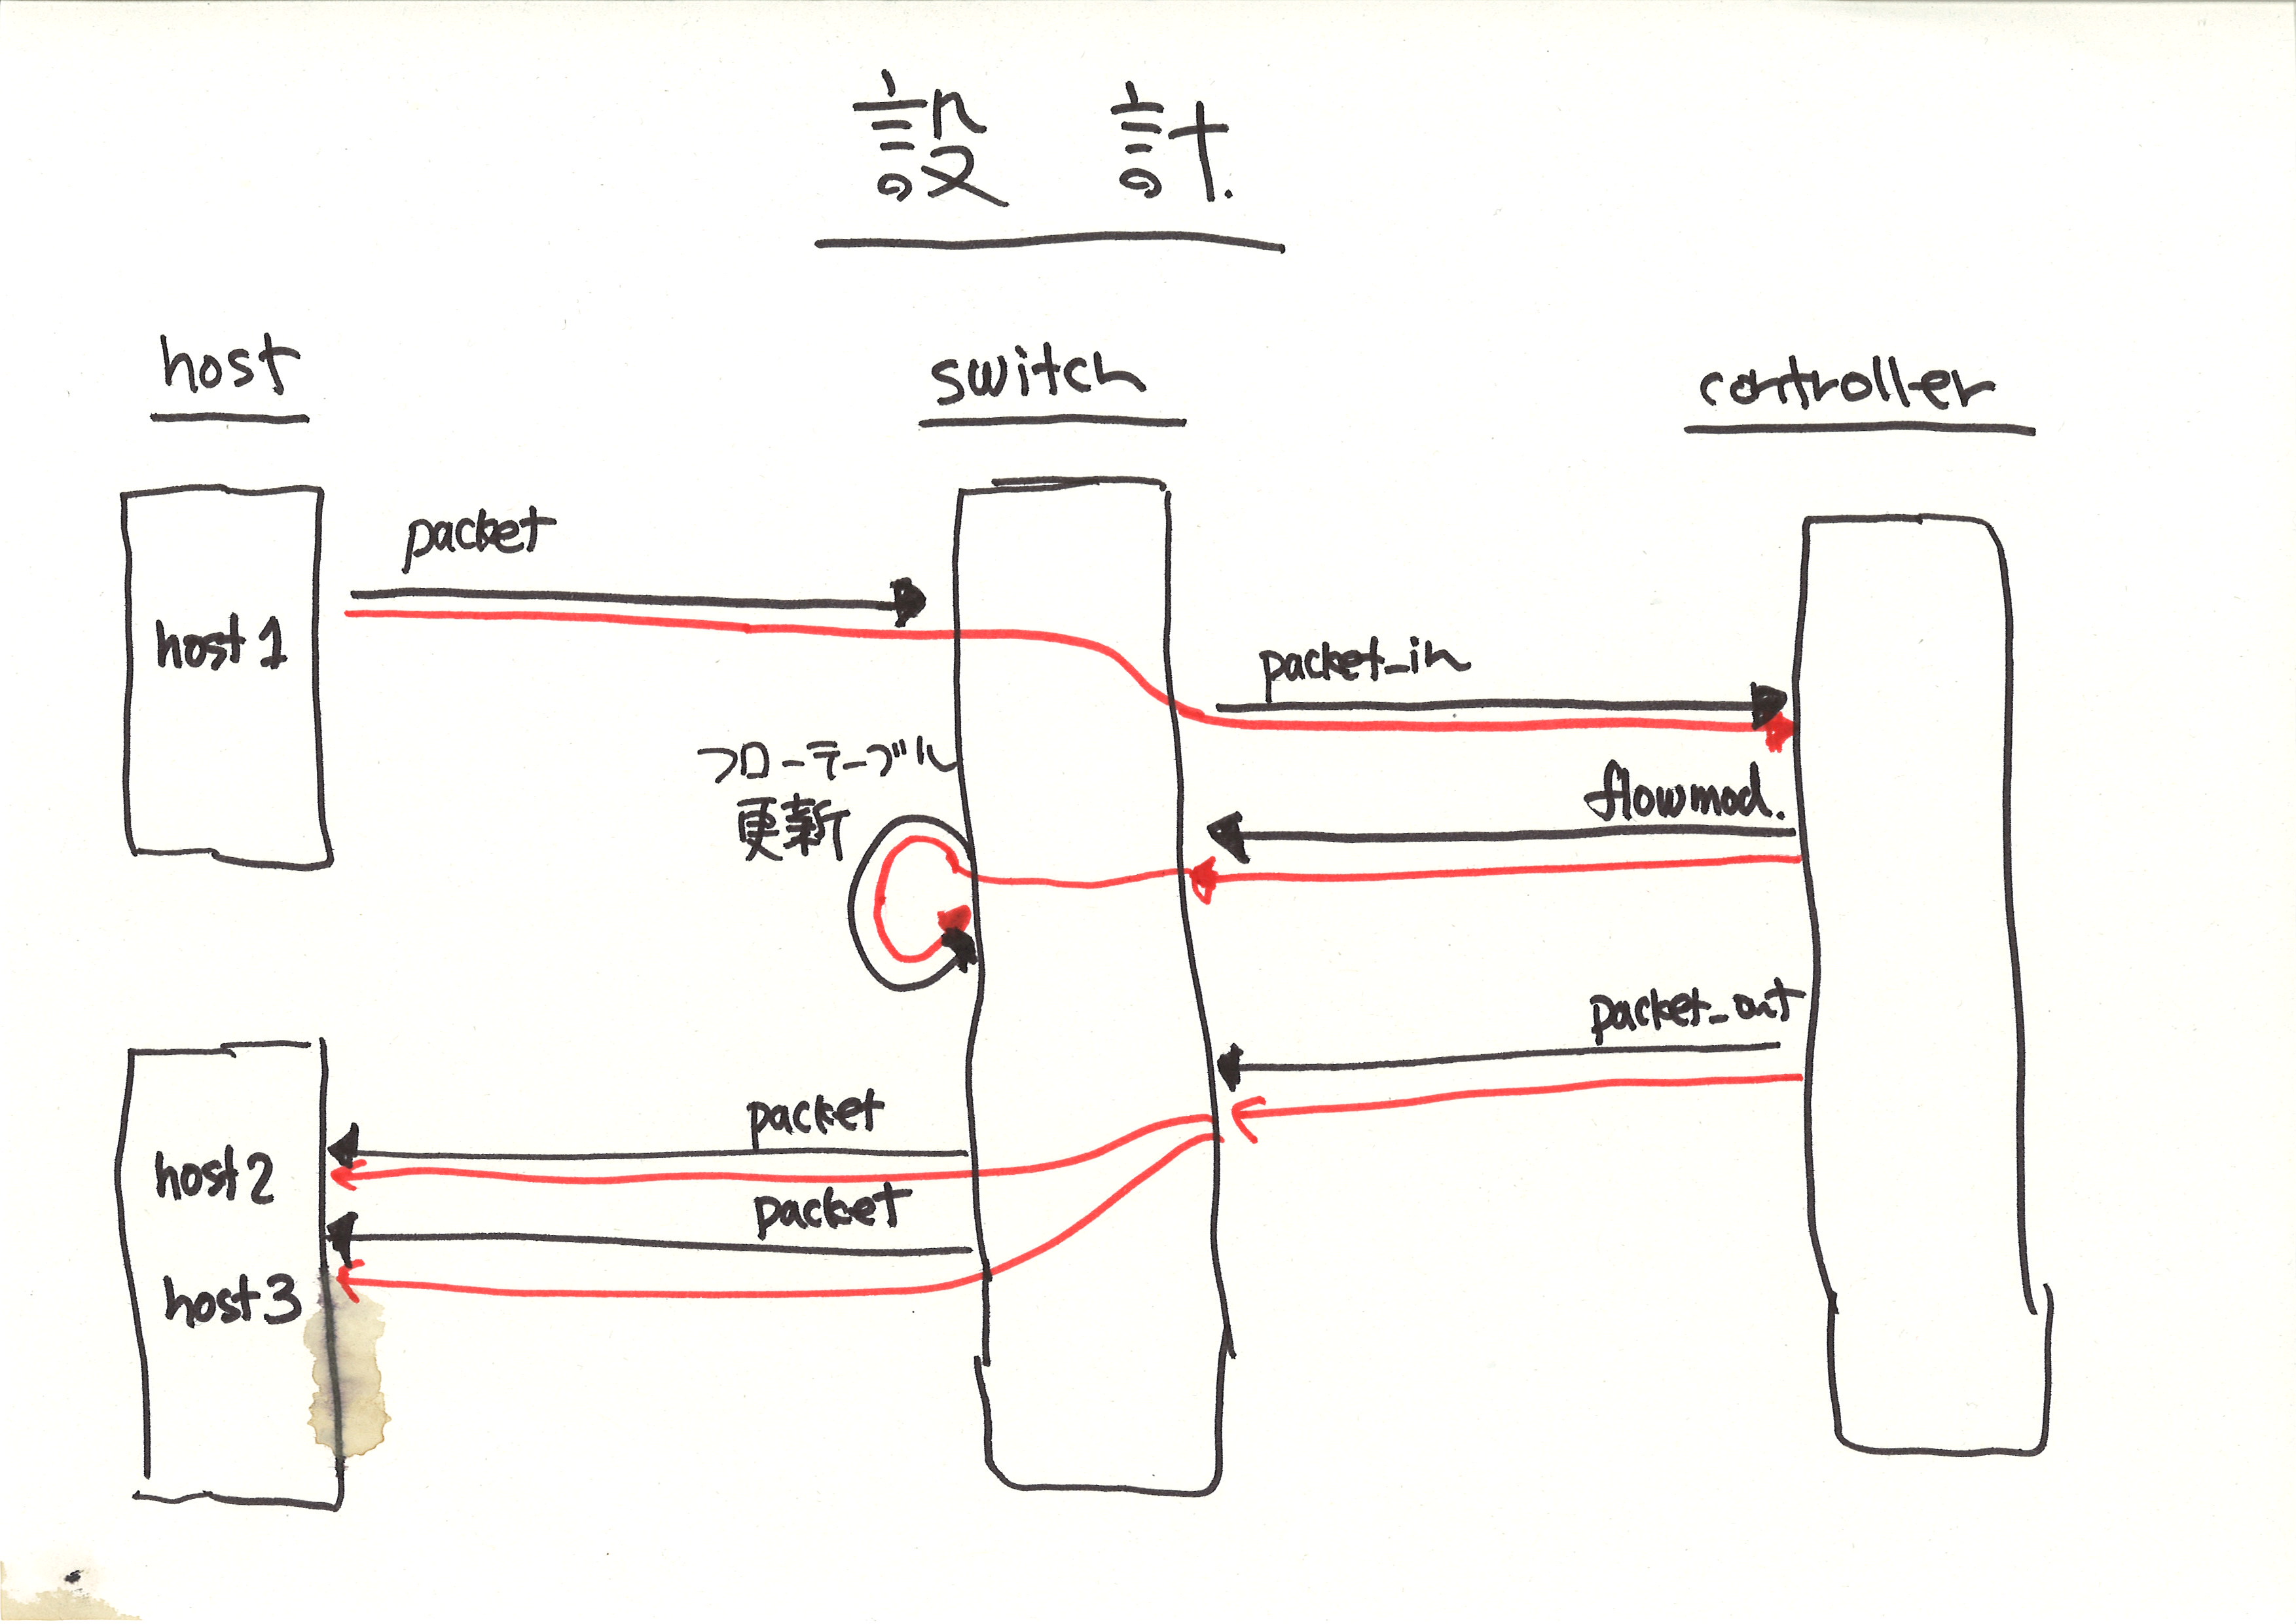 設 計.
host
switch
controller
packet
host1
packet_in
フローテーブル
更新
flowmod.
packet_out
packet
host2
packet
host3